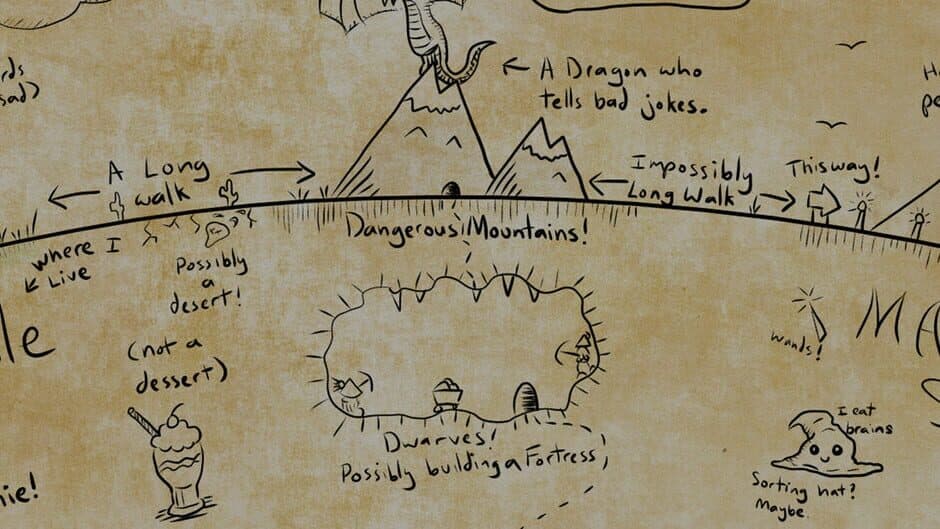 A Dragon who
tells bad jokes.
sad)
A Long
walk
Impossibly
Long Walk
This way!
Dangerous Mountains!
where I
Live
Possibly
a
desert!
(not a
dessert)
wands!
Dwarves!
Possibly building a Fortress,
I eat
brains
Sorting hat?
Maybe.